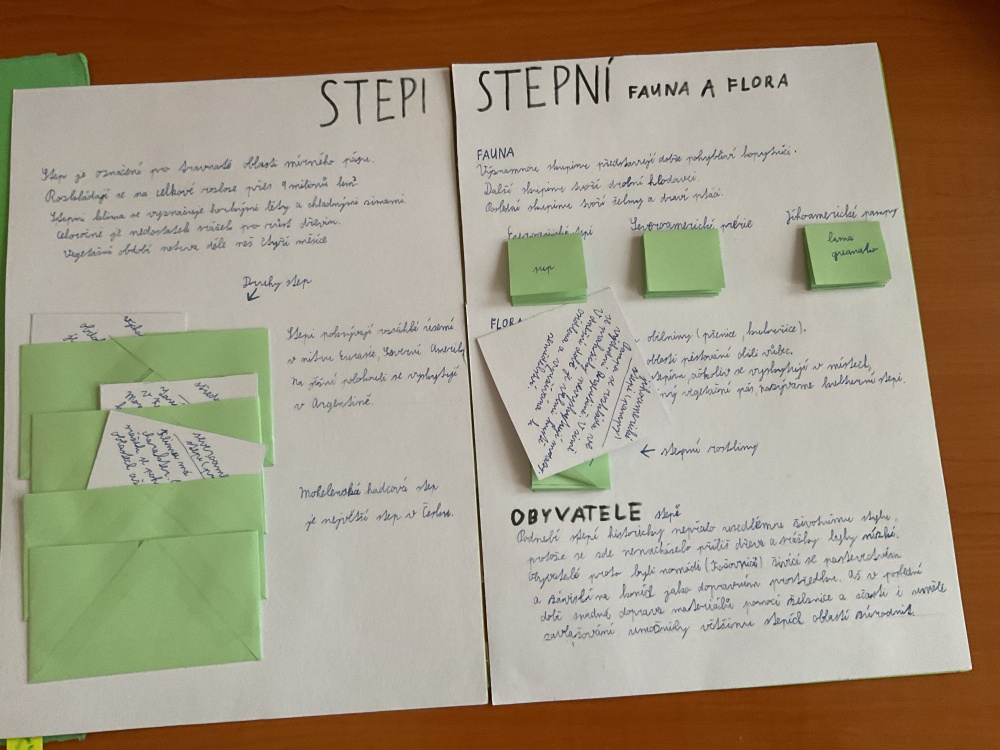 STEPI
Step je označení pro travnaté oblasti mírného pásu.
Rozkládají se na celkové rozloze přes 9 milionů km²
Stepní klima se vyznačuje horkými léty a chladnými zimami.
Celoročně je nedostatek srážek pro růst dřevin.
Vegetační období netrvá déle než čtyři měsíce
Druhy step
Stepi pokrývají rozsáhlé území
v nitru Eurasie, Severní Ameriky
Na jižní polokouli se vyskytují
v Argentině.
Mohelenská hadcová step
je největší step v Česku.
STEPNÍ FAUNA A FLORA
FAUNA
Významnou skupinu představují dobře pohybliví kopytníci.
Další skupinu tvoří drobní hlodavci.
Poslední skupinu tvoří šelmy a draví ptáci.
Euroasijské stepi
Severoamerické prérie
Jihoamerické pampy
sup
lama
guanako
FLORA
obilniny (pšenice, kukuřice).
oblastí pěstování obilí vůbec.
stepím, ačkoliv se vyskytují v místech,
ný vegetační pás, nazýváme kulturní stepi.
jihoamerické
stepi (pampy)
Pampa se rozkládá ve
východní Argentině. V zimě
se prakticky nevyskytují mrazy.
V dnešní době je její půda
orána a využívána k
zemědělství.
← stepní rostliny
OBYVATELE stepě
Podnebí stepí historicky nepřálo usedlému životnímu stylu,
protože se zde nenacházelo příliš dřeva a srážky byly nízké.
Obyvatelé proto byli nomádi (Kočovníci) živící se pastevectvím
a závislí na koních jako dopravním prostředku. Až v poslední
době snadná doprava materiálů pomocí železnice a zčásti i umělé
zavlažování umožnily většinu stepích oblastí zúrodnit.